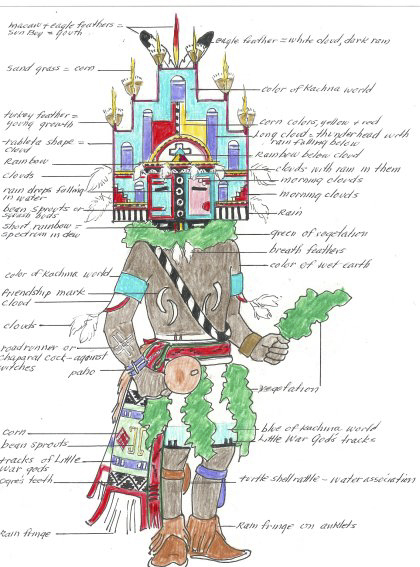 macaw + eagle feathers =
Sun Boy = youth
eagle feather = white cloud, dark rain
sand grass = corn
color of Kachina world
turkey feather =
young growth
corn colors, yellow + red
long cloud = thunderhead with
rain falling below
tableta shape =
cloud
Rainbow
Rainbow below cloud
clouds
clouds with rain in them
morning clouds
rain drops falling
in water
morning clouds
bean sprouts or
Rain
short rainbow =
spectrum in dew
green of vegetation
breath feathers
color of wet earth
color of Kachina world
Friendship mark
cloud
clouds
roadrunner or
chaparal cock - against
witches
paho
vegetation
corn
blue of Kachina world
bean sprouts
Little War Gods tracks
tracks of Little
War gods
ogre's teeth
turtle shell rattle - water association
Rain fringe
Rain fringe on anklets